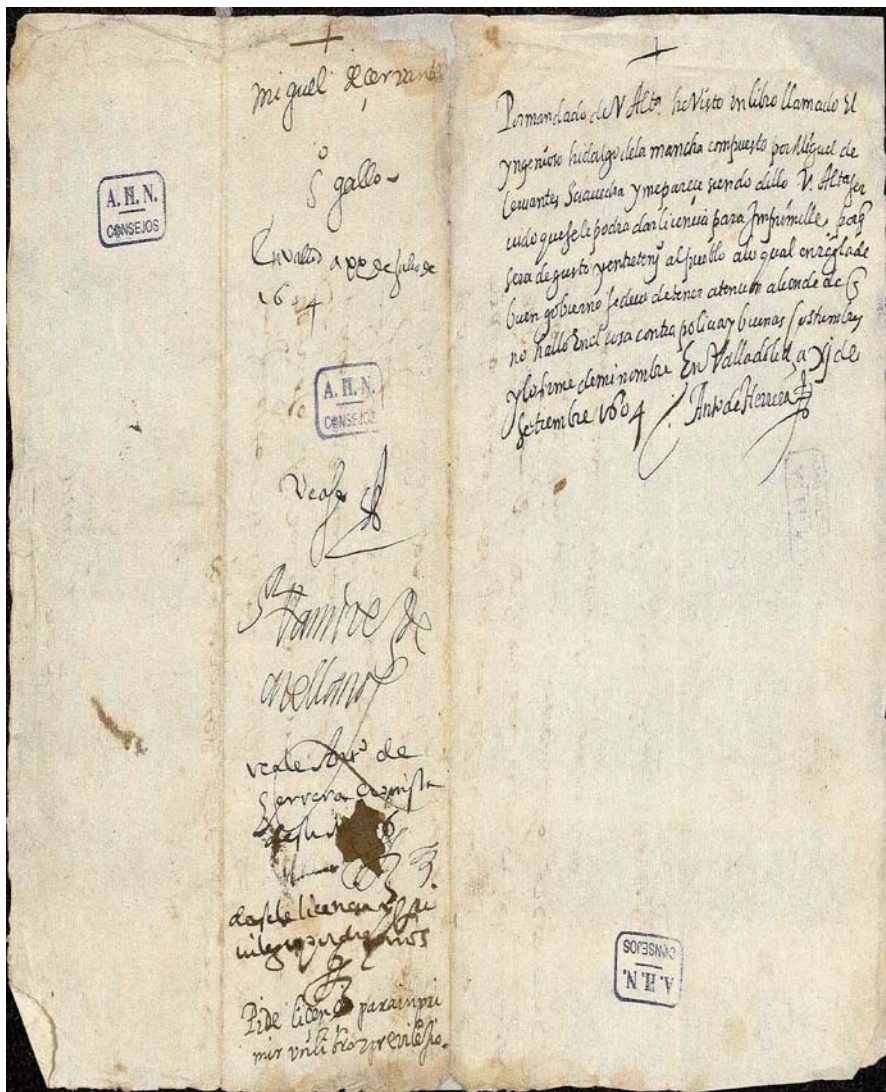 A. H. N.
CONSEJOS
+
miguel de cervantes
S.º gallo
En Vallid a xx de Julio de
1604
A. H. N.
CONSEJOS
Vealo
Ramirez de
Arellano
veale Antº de
Herrera coronista
dasele licencia y pri
vilegio por diez años
Pide licencia para inpri
mir un libro y previlejio.
+
Por mandado de V Alta. he Visto un libro llamado El
yngenioso hidalgo de la mancha compuesto por Miguel de
Cervantes Saavedra y me parece siendo dello V. Alta ser
uido que se le podra dar licencia para Imprimille porq
sera de gusto y entretenimº al pueblo a lo qual en regla de
buen gobierno se deue de tener atencion aliende de q
no hallo En el cosa contra policia y buenas Costumbres
y lo firme de mi nombre En Valladolid a xj de
Setiembre 1604 Antº de Herrera
A. H. N.
CONSEJOS